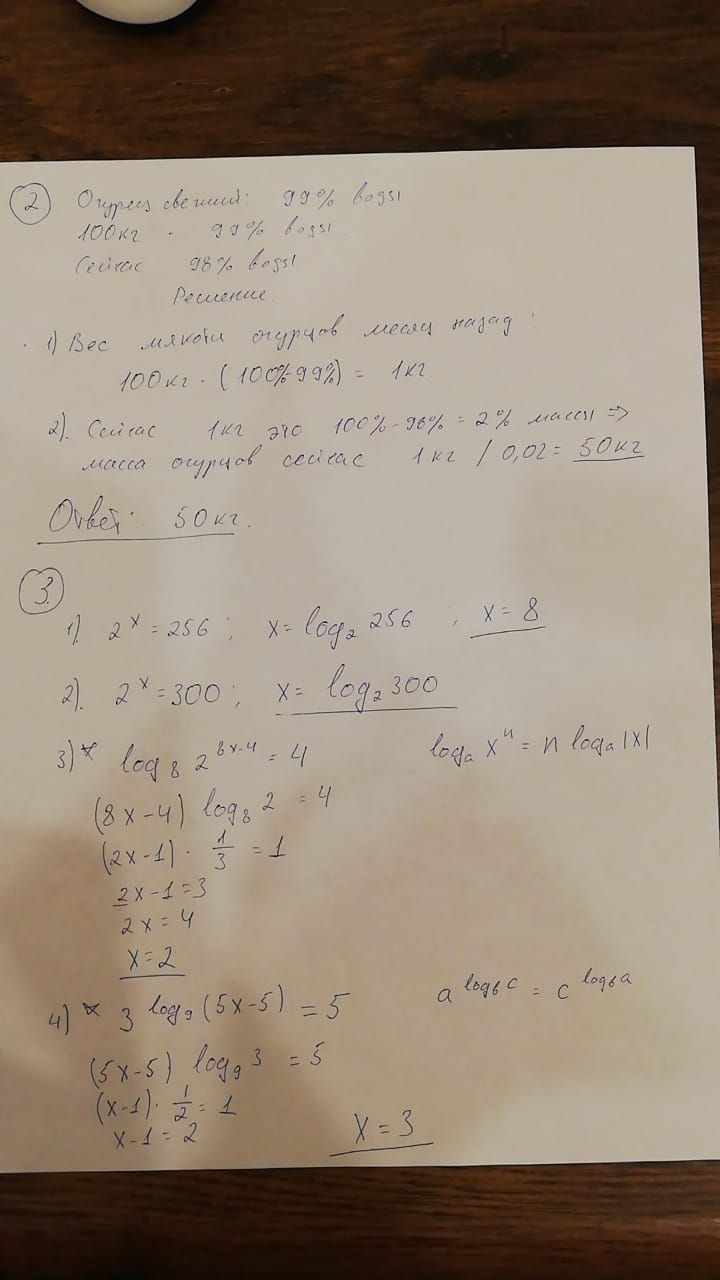 2. Огурец свежий: 99% воды
100кг - 99% воды
Сейчас 98% воды
Решение.
1) Вес мякоти огурцов месяц назад:
100кг · (100%-99%) = 1кг.
2). Сейчас 1кг это 100%-98% = 2% массы =>
масса огурцов сейчас 1кг / 0,02 = 50кг
Ответ: 50кг.
3.
1). 2^x = 256; x = log₂ 256; x = 8
2). 2^x = 300; x = log₂ 300
3)* log₈ 2^(8x-4) = 4 logₐ xⁿ = n logₐ |x|
(8x-4) log₈ 2 = 4
(2x-1) · 1/3 = 1
2x-1 = 3
2x = 4
x = 2
4)* 3^(log₉(5x-5)) = 5 a^(log_b c) = c^(log_b a)
(5x-5)^(log₉ 3) = 5
(x-1) · 1/2 = 1
x-1 = 2 x = 3